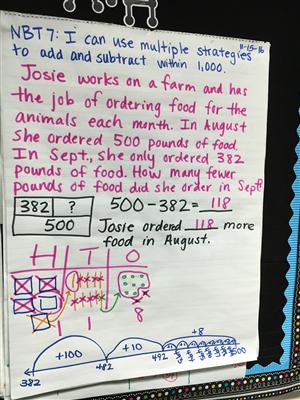 NBT7: I can use multiple strategies 11-15-16
to add and subtract within 1,000.
Josie works on a farm and has
the job of ordering food for the
animals each month. In August
she ordered 500 pounds of food.
In Sept., she only ordered 382
pounds of food. How many fewer
pounds of food did she order in Sept?
382 ?
500
500-382=118
Josie ordered 118 more
food in August.
H T O
1 1 8
+100 +10 +8
382 482 492 500